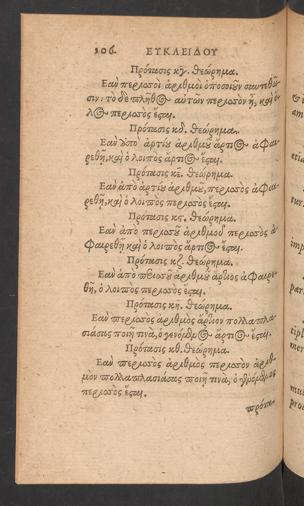 106. ΕΥΚΛΕΙΔΟΥ
Πρότασις κγ. Θεώρημα.
Ἐὰν περισσοὶ ἀριθμοὶ ὁποσοιοῦν συντεθῶ-
σιν: τὸ δὲ πλῆθος αὐτῶν περισσὸν ᾖ, καὶ ὁ ὅ-
λος περισσὸς ἔσται.
Πρότασις κδ. Θεώρημα.
Ἐὰν ὑπὸ ἀρτίου ἀριθμοῦ ἄρτιος ἀφαι-
ρεθῇ, καὶ ὁ λοιπὸς ἄρτιος ἔσται.
Πρότασις κε. Θεώρημα.
Ἐὰν ἀπὸ ἀρτίου ἀριθμοῦ, περισσὸς ἀφαι-
ρεθῇ, καὶ ὁ λοιπὸς περισσὸς ἔσται.
Πρότασις κϛ. Θεώρημα.
Ἐὰν ἀπὸ περισσοῦ ἀριθμοῦ περισσὸς ἀ-
φαιρεθῇ καὶ ὁ λοιπὸς ἄρτιος ἔσται.
Πρότασις κζ. Θεώρημα.
Ἐὰν ἀπὸ περισσοῦ ἀριθμοῦ ἄρτιος ἀφαιρε-
θῇ, ὁ λοιπὸς περισσὸς ἔσται.
Πρότασις κη. Θεώρημα.
Ἐὰν περισσὸς ἀριθμὸς ἄρτιον πολλαπλα-
σιάσας ποιῇ τινὰ, ὁ γενόμενος ἄρτιος ἔσται.
Πρότασις κθ. Θεώρημα.
Ἐὰν περισσὸς ἀριθμὸς περισσὸν ἀριθ-
μὸν πολλαπλασιάσας ποιῇ τινα, ὁ γενόμενος
περισσὸς ἔσται.
πρότα-